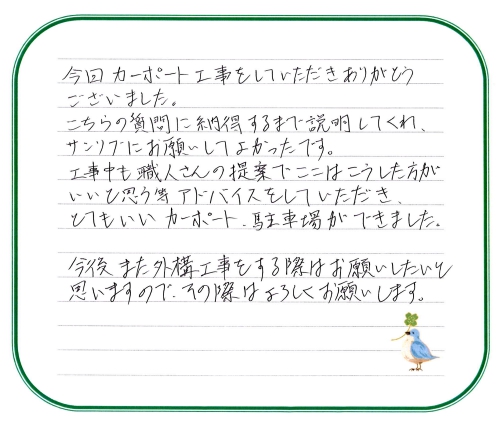 今回 カーポート工事をしていただきありがとう
ございました。
こちらの質問に納得するまで説明してくれ、
サンリブにお願いしてよかったです。
工事中も職人さんの提案でここはこうした方が
いいと思う等 アドバイスをしていただき、
とてもいい カーポート、駐車場ができました。
今後また外構工事をする際はお願いしたいと
思いますので、その際はよろしくお願いします。